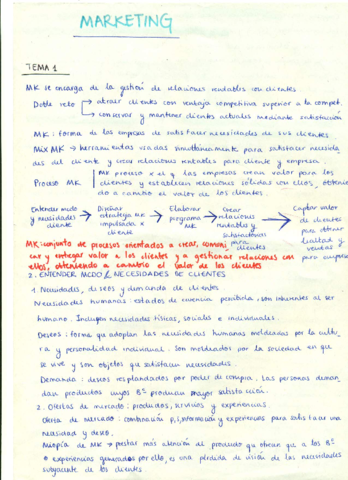 MARKETING
TEMA 1
MK se encarga de la gestión de relaciones rentables con clientes
Doble reto → atraer clients con ventaja competitiva superior a la compet.
→ conservar y mantener clientes actuales mediante satisfacción
MK: forma de las empresas de satisfacer necesidades de sus clientes
Mix MK → herramientas usadas simultáneamente para satisfacer necesida
des del cliente y crear relaciones rentables para cliente y empresa.
Proceso MK | MK proceso x el q las empresas crean valor para los
clientes y establecen relaciones sólidas con ellos, obtenien
do a cambio el valor de los clientes.
Entender mdo y necesidades cliente → Diseñar estrategia MK impulsada x cliente → Elaborar programa MK → Crear relaciones rentables y satisfactorias para clientes → Captar valor de clientes para obtener lealtad y ventas para empresa
MK: conjunto de procesos orientados a crear, comuni
car y entregar valor a los clientes y a gestionar relaciones con
ellos, obteniendo a cambio el valor de los clientes
2. ENTENDER MCDO Y NECESIDADES DE CLIENTES
1. Necesidades, deseos y demanda de clientes
Necesidades humanas: estados de carencia percibida, son inherentes al ser
humano. Incluyen necesidades físicas, sociales e individuales.
Deseos: forma que adoptan las necesidades humanas moldeadas por la cultu
ra y personalidad individual. Son moldeados por la sociedad en que
se vive y son objetos que satisfacen necesidades.
Demanda: deseos respaldados por poder de compra. Las personas deman
dan productos cuyos Bº produzcan mayor satisfacción.
2. Ofertas de mercado: productos, servicios y experiencias
Oferta de mercado: combinación p,s,información y experiencias para satisfacer una
necesidad y deseo.
Miopía de MK → prestar más atención al producto que ofrecen que a los Bº
o experiencias generados por ello, es una pérdida de visión de las necesidades
subyacente de los clientes.